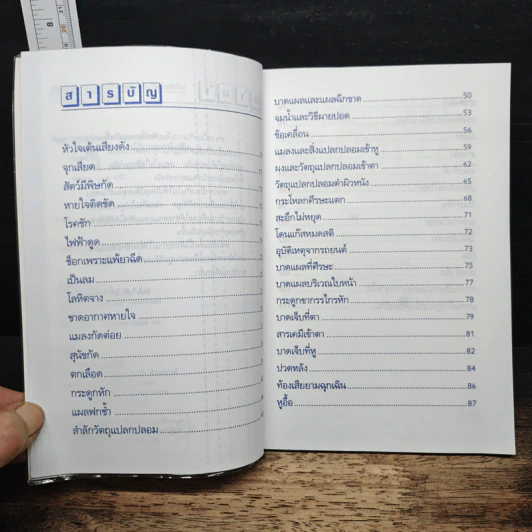 8
สารบัญ
หัวใจเต้นเสียงดัง
จุกเสียด
สัตว์มีพิษกัด
หายใจติดขัด
โรคชัก
ไฟฟ้าดูด
ช็อกเพราะแพ้ยาฉีด
เป็นลม
โลหิตจาง
ขาดอากาศหายใจ
แมลงกัดต่อย
สุนัขกัด
ตกเลือด
กระดูกหัก
แผลฟกช้ำ
สำลักวัตถุแปลกปลอม
บาดแผลและแผลฉีกขาด 50
จมน้ำและวิธีผายปอด 53
ข้อเคลื่อน 56
แมลงและสิ่งแปลกปลอมเข้าหู 59
ผงและวัตถุแปลกปลอมเข้าตา 62
วัตถุแปลกปลอมตำผิวหนัง 65
กระโหลกศีรษะแตก 68
สะอึกไม่หยุด 71
โดนแก๊สหมดสติ 72
อุบัติเหตุจากรถยนต์ 73
บาดแผลที่ศีรษะ 75
บาดแผลบริเวณใบหน้า 77
กระดูกขากรรไกรหัก 78
บาดเจ็บที่ตา 79
สารเคมีเข้าตา 81
บาดเจ็บที่หู 82
ปวดหลัง 84
ท้องเสียยามฉุกเฉิน 86
หูอื้อ 87